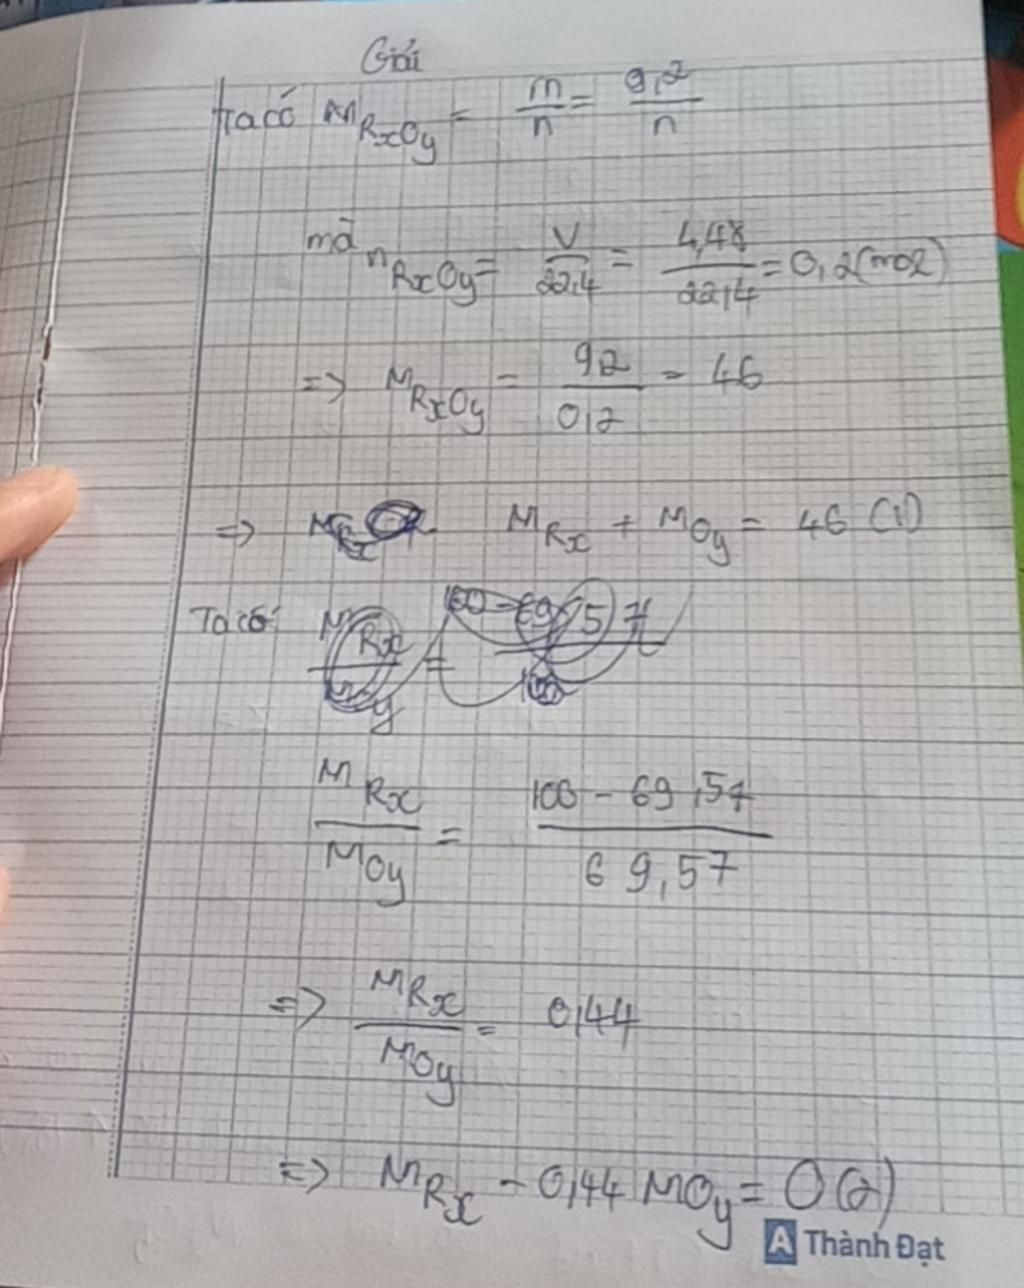 Giải
ta có M RxOy = m/n = 9,2/n
mà n RxOy = V/22,4 = 4,48/22,4 = 0,2(mol)
=> M RxOy = 92/0,2 = 46
=> M Rx + M Oy = 46 (1)
Ta có
M Rx/M Oy = 100 - 69,57/69,57
=> M Rx/M Oy = 0,44
=> M Rx - 0,44 M Oy = 0 (2)
A Thành Đạt